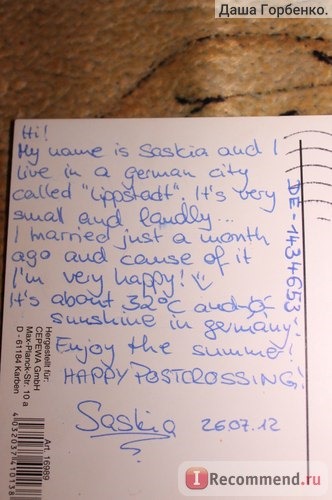 Даша Горбенко.
Hi!
My name is Saskia and I
live in a german city
called "Lippstadt". It's very
small and landly...
I married just a month
ago and cause of it
I'm very happy!
It's about 32°C and
sunshine in germany!
Enjoy the summer!
HAPPY POSTCROSSING!
Saskia 26.07.12
DE-1434653
Hergestellt für:
CEPEWA GmbH
Max-Planck-Str. 10 a
D - 61184 Karben
Art. 16989
4 032037 410138
I Recommend.ru